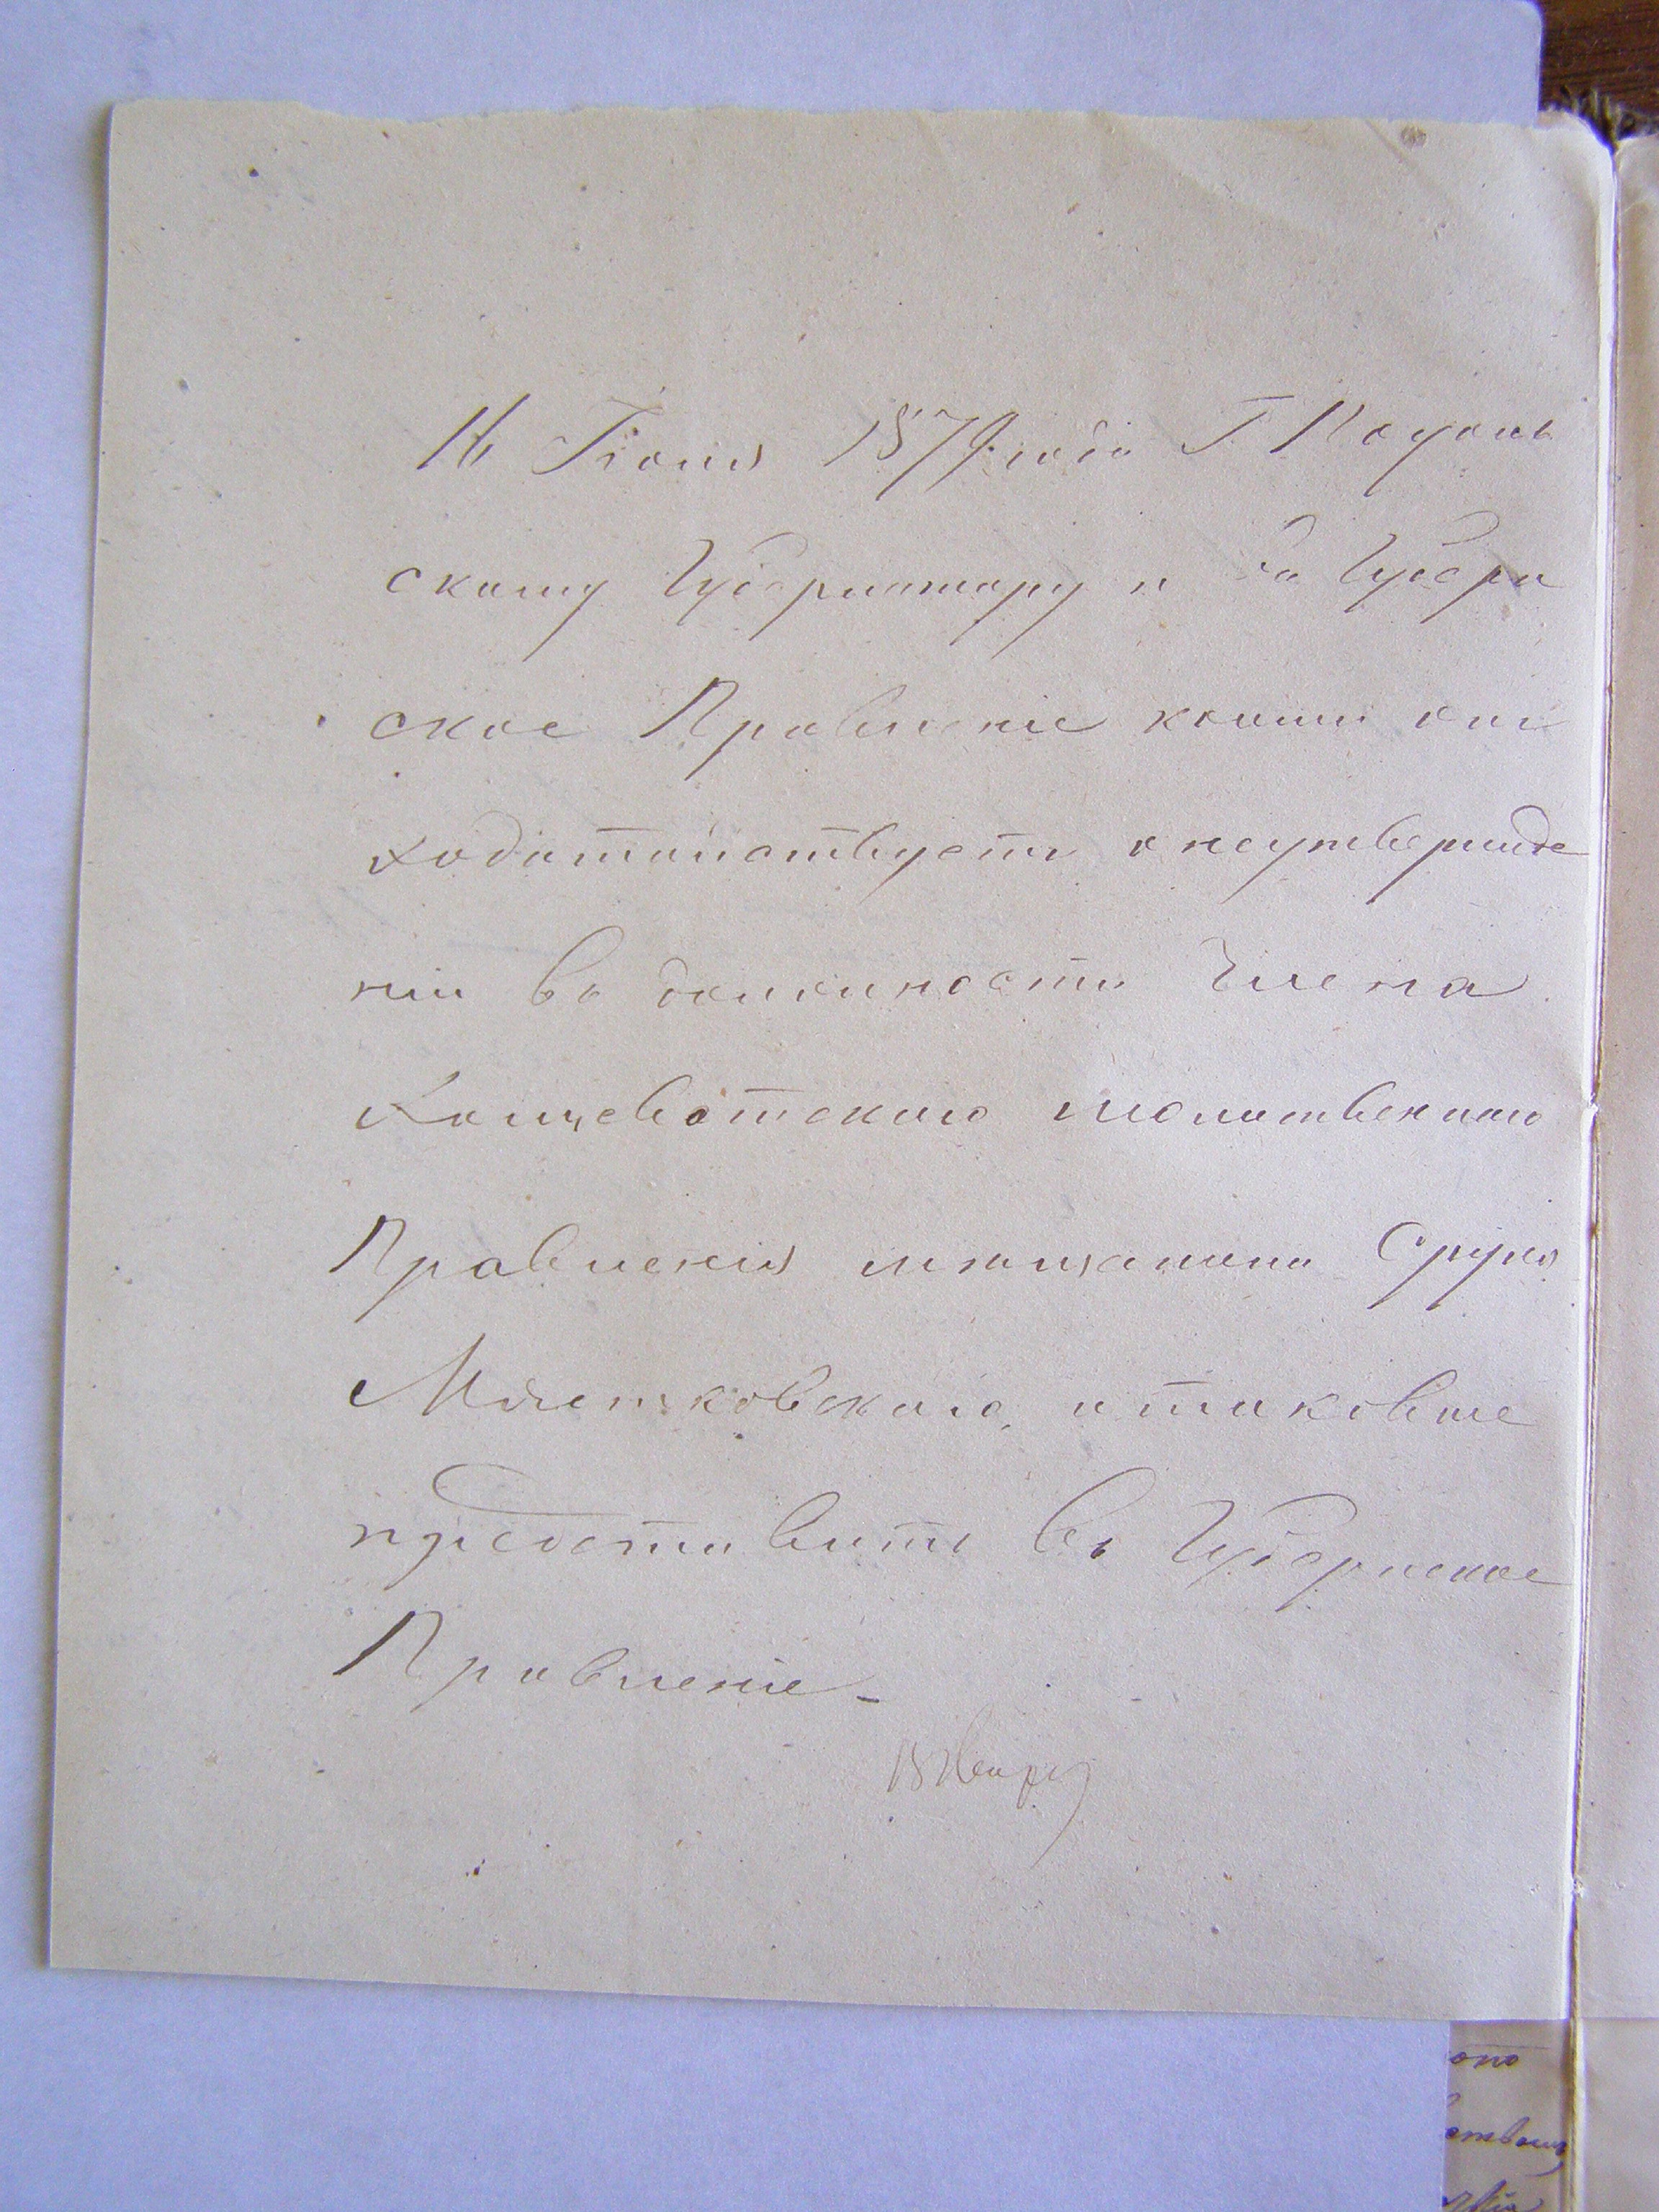 16 Іюня 1879 года Г. Подоль
скому Губернатору и въ Губерн
ское Правленіе коими онъ
ходатайствуетъ о неутвержде
ніи въ должности Члена
Хощеватскаго молитвеннаго
Правленія мѣщанина Сруля
Мястковскаго, и таковые
представить въ Губернское
Правленіе -